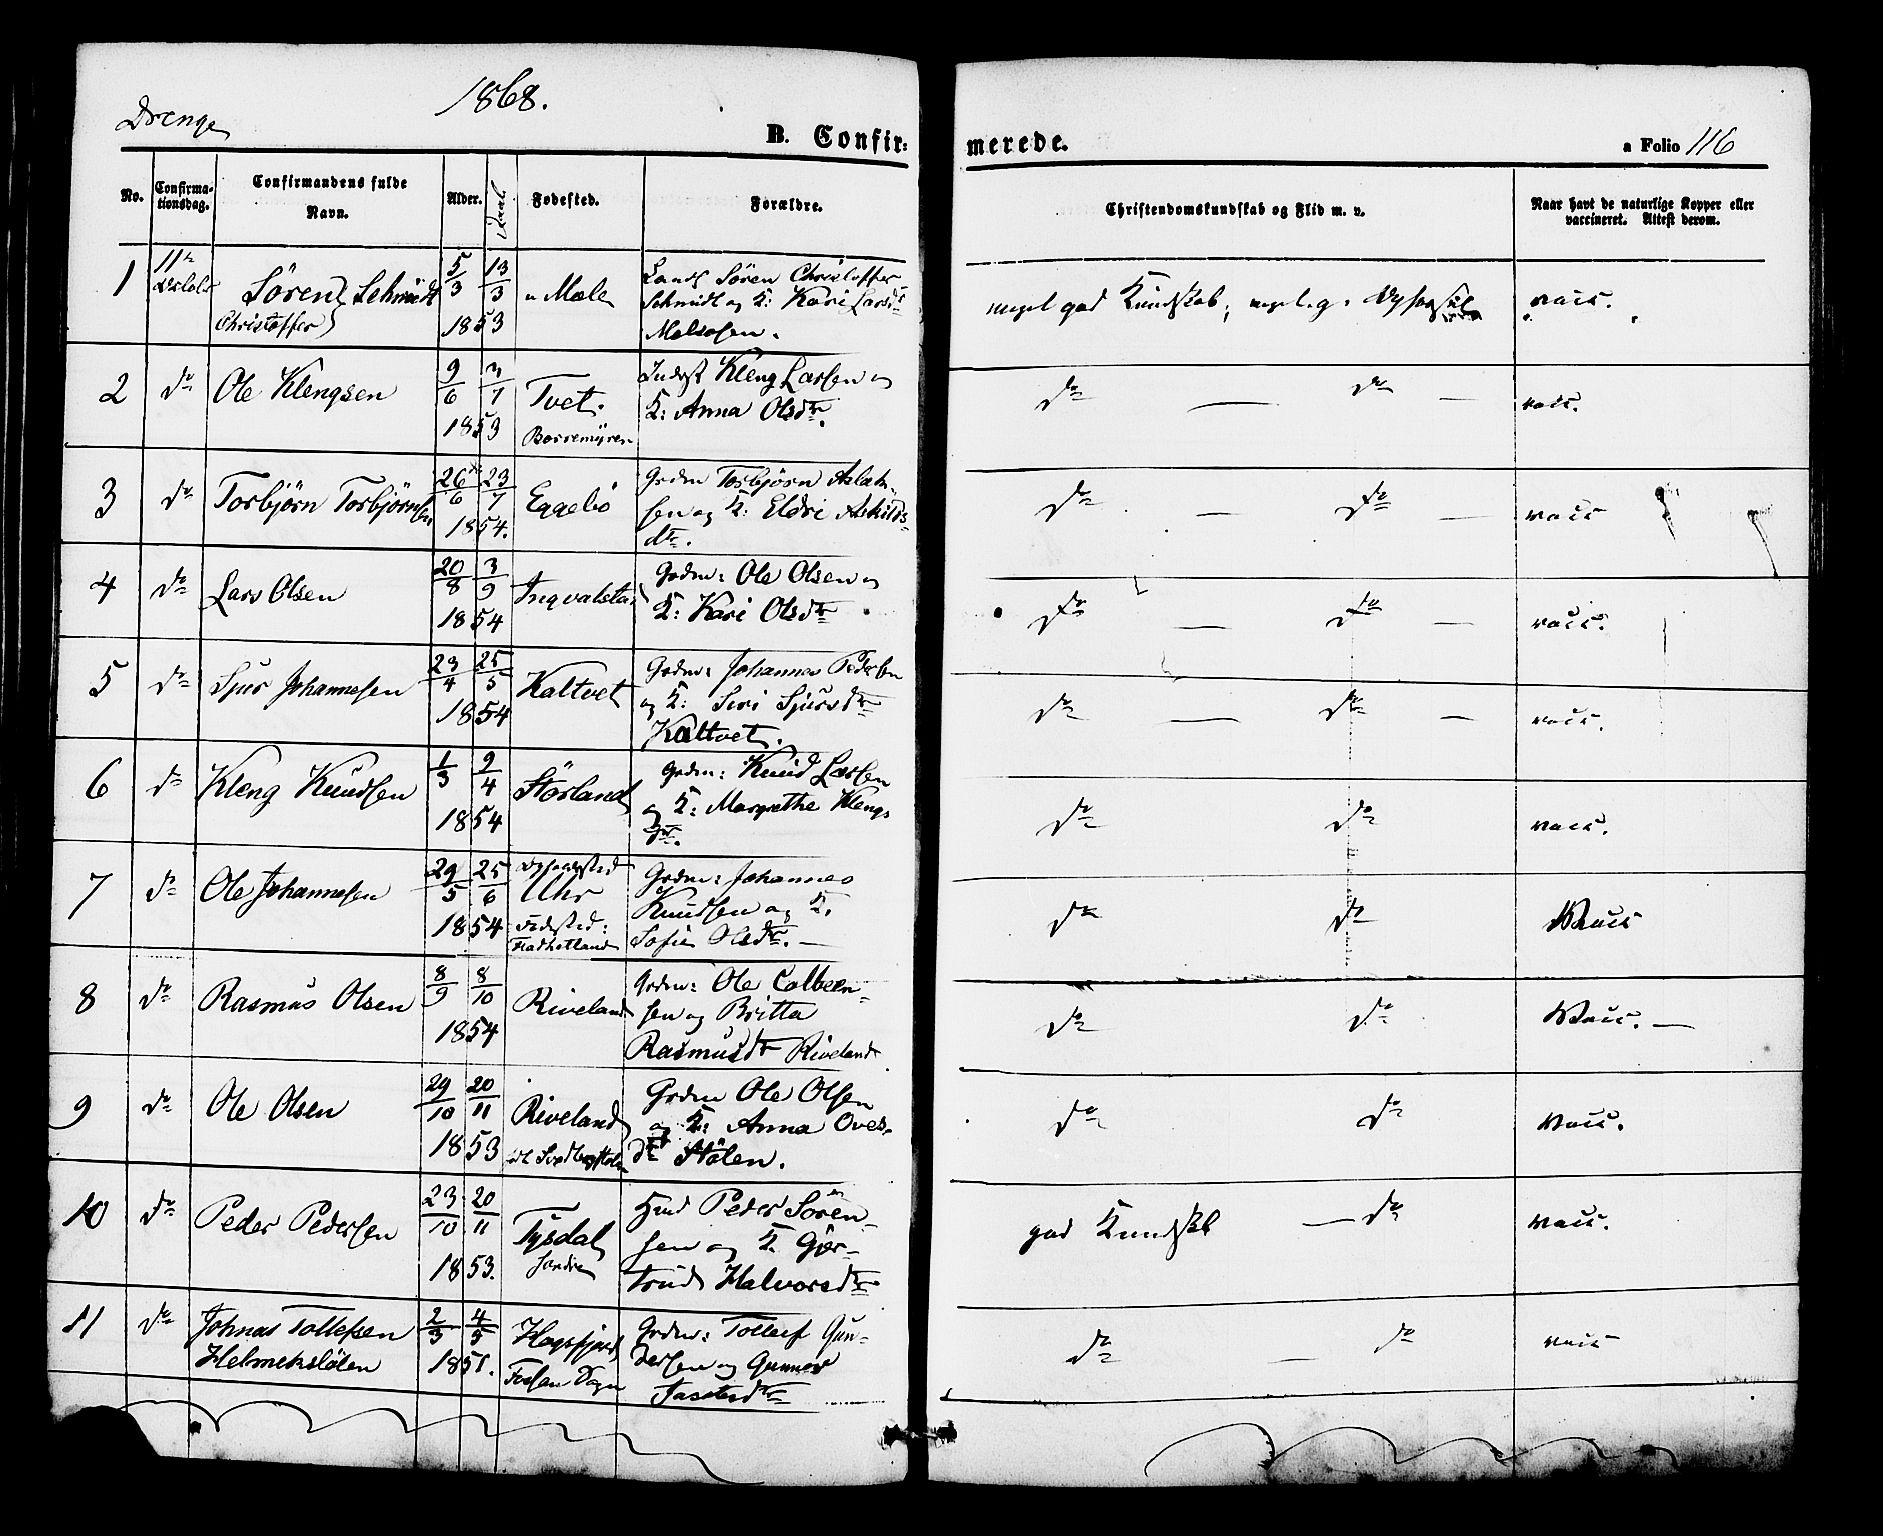 1868.
Drenge
B. Confir:
merede.
a Folio 116
No.
Confirma-
tionsdag.
Confirmandens fulde
Navn.
Alder.
Fødested.
Forældre.
Christendomskundskab og Flid m. v.
Naar havt de naturlige Kopper eller
vaccineret. Attest derom.
1
Sören Schmidt
Christoffer
5/3 13/3
1853
Mæle
Sören Christoffer
Schmidt og K: Kari Larsdr
meget god Kundskab,
vacc.
2 do Ole Klengsen
9/6 3/7
1853
Tvet.
Borremyren
Inderst Kleng Larsen og
K: Anna Olsdtr.
do do
vacc.
3 do Torbjörn Torbjörnsen
26/6 23/7
1854.
Eggebö
Grdm Torbjörn Aslak-
sen og K: Eldri Askilds-
dtr.
do do
vacc
4 do Lars Olsen
20/8 3/9
1854
Ingvalsta
Grdm: Ole Olsen og
K: Kari Olsdtr
do do
vacc.
5 do Sjur Johannesen
23/4 25/5
1854
Kaltvet
Grdm: Johannes Pedersen
og K: Siri Sjursdtr
Kaltvet.
do do
vacc.
6 do Kleng Knudsen
1/3 9/4
1854
Störland
Grdm: Knud Larsen
og K: Margrethe Klengs
dtr.
do do
vacc.
7 do Ole Johannesen
29/5 25/6
1854
Uhr
Födested:
Grdm: Johannes
Knudsen og K.
Sofie Olsdtr. —
do do
Vacc
8 do Rasmus Olsen
8/9 8/10
1854
Riveland
Grdm: Ole Colbeen-
sen og Britta
Rasmusdtr Riveland
do do
Vacc. —
9 do Ole Olsen
29/10 20/11
1853
Riveland
Grdm Ole Olsen
og K: Anna Oves-
dtr Stölen.
do do
Vacc.
10 do Peder Pedersen
23/10 20/11
1853.
Tysdal
Hmd Peder Sören-
sen og K. Gjer-
trud Halvorsdtr
god Kundskb — do
vacc.
11 do Johnas Tollefsen
Helmeksstölen
2/3 4/5
1851.
Hogsfjord
Grdm: Tollef Gun-
dersen og Gunnor
do do
vacc